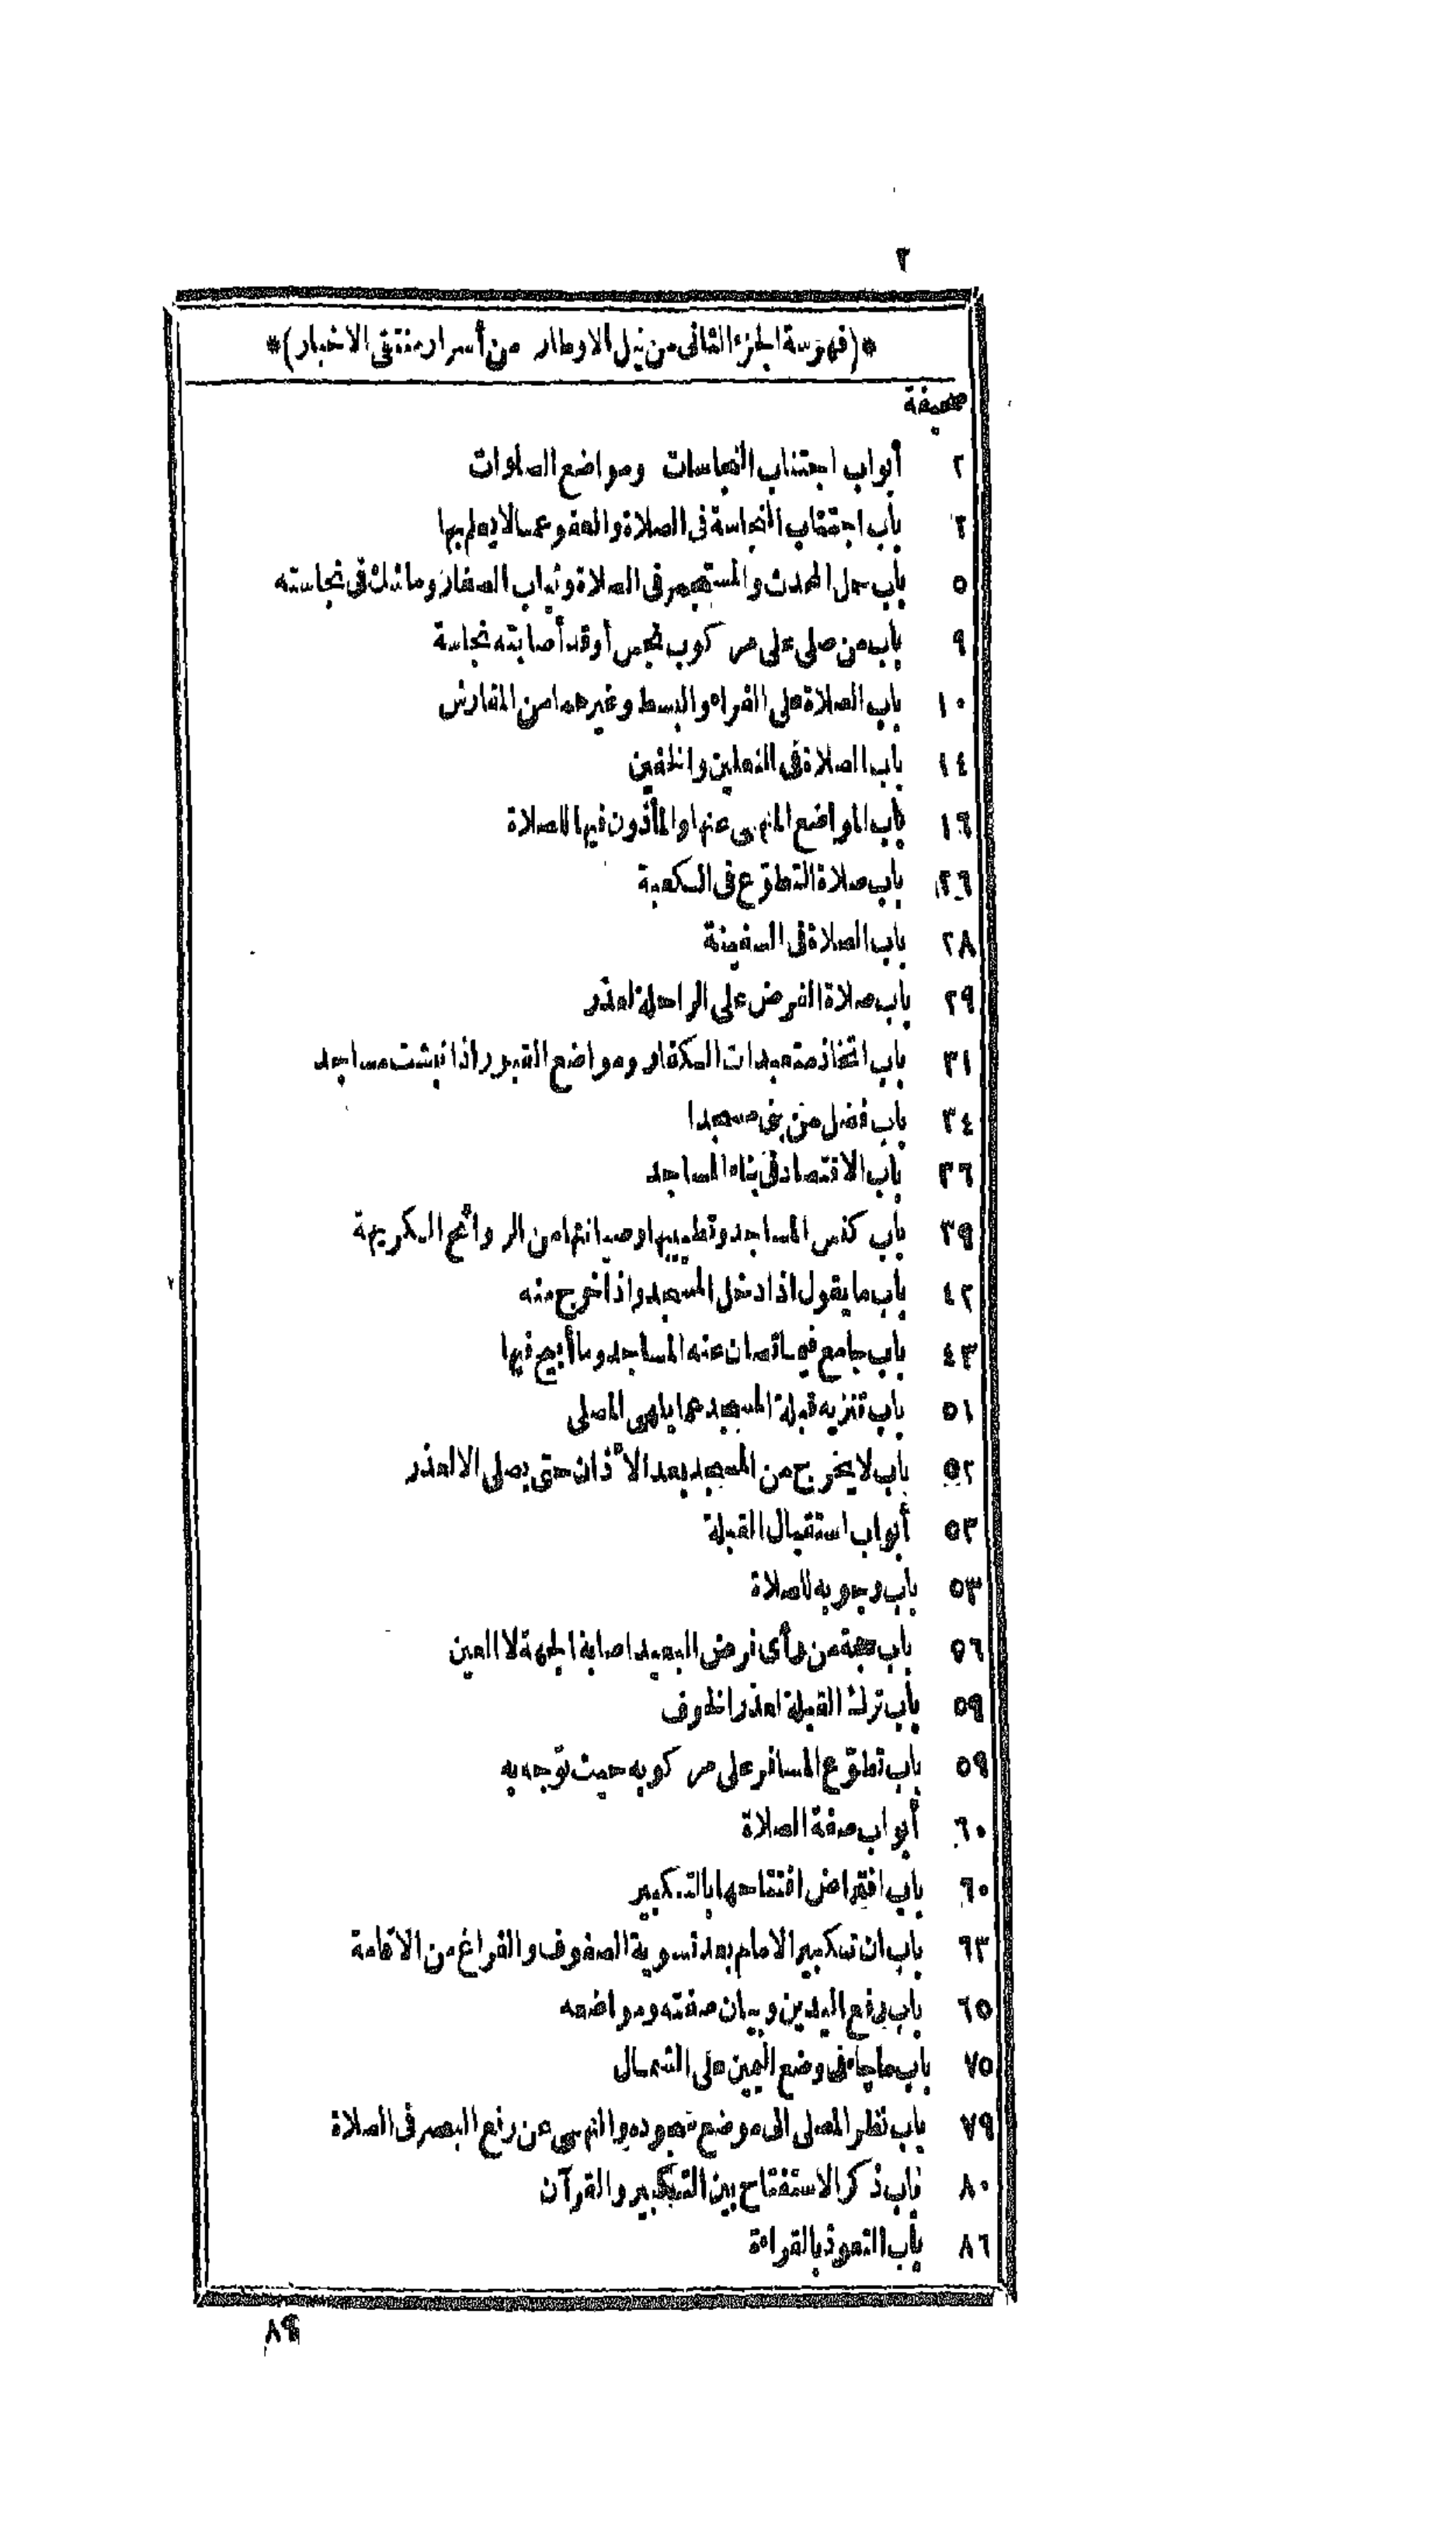 ٢
*(فهرسة الجزء الثاني من نيل الاوطار من أسرار منتقى الاخبار)*
صحيفة
٢ أبواب اجتناب النجاسات ومواضع الصلوات
٢ باب اجتناب النجاسة فى الصلاة والعفو عما لا يعلم بها
٥ باب حمل المحدث والمستجمر فى الصلاة وثياب الصغار وما شك فى نجاسته
٩ باب من صلى على مركوب نجس أو قد أصابته نجاسة
١٠ باب الصلاة على الفراء والبسط وغيرهما من المفارش
١٤ باب الصلاة فى النعلين والخفين
١٦ باب المواضع المنهى عنها والمأذون فيها للصلاة
٢٦ باب صلاة التطوّع فى الكعبة
٢٨ باب الصلاة فى السفينة
٢٩ باب صلاة الفرض على الراحلة لعذر
٣١ باب اتخاذ متعبدات الكفار ومواضع القبور اذا نبشت مساجد
٣٤ باب فضل من بنى مسجدا
٣٦ باب الاقتصاد فى بناء المساجد
٣٩ باب كنس المساجد وتطييبها وصيانتها من الروائح الكريهة
٤٢ باب ما يقول اذا دخل المسجد واذا خرج منه
٤٣ باب جامع فيما تصان عنه المساجد وما أبيح فيها
٥١ باب تنزيه قبلة المسجد عما يلهى المصلى
٥٢ باب لا يخرج من المسجد بعد الأذان حتى يصلى الا لعذر
٥٣ أبواب استقبال القبلة
٥٣ باب وجوبه للصلاة
٥٦ باب حجة من رأى فرض البعيد اصابة الجهة لا العين
٥٩ باب ترك القبلة لعذر الخوف
٥٩ باب تطوّع المسافر على مركوبه حيث توّجه به
٦٠ أبواب صفة الصلاة
٦٠ باب افتراض افتتاحها بالتكبير
٦٣ باب ان تكبير الامام بعد تسوية الصفوف والفراغ من الاقامة
٦٥ باب رفع اليدين وبيان صفته ومواضعه
٧٥ باب ماجاء فى وضع اليمين على الشمال
٧٩ باب نظر المصلى الى موضع سجوده والنهى عن رفع البصر فى الصلاة
٨٠ باب ذكر الاستفتاح بين التكبير والقرآن
٨٦ باب التعوذ بالقراءة
٨٩